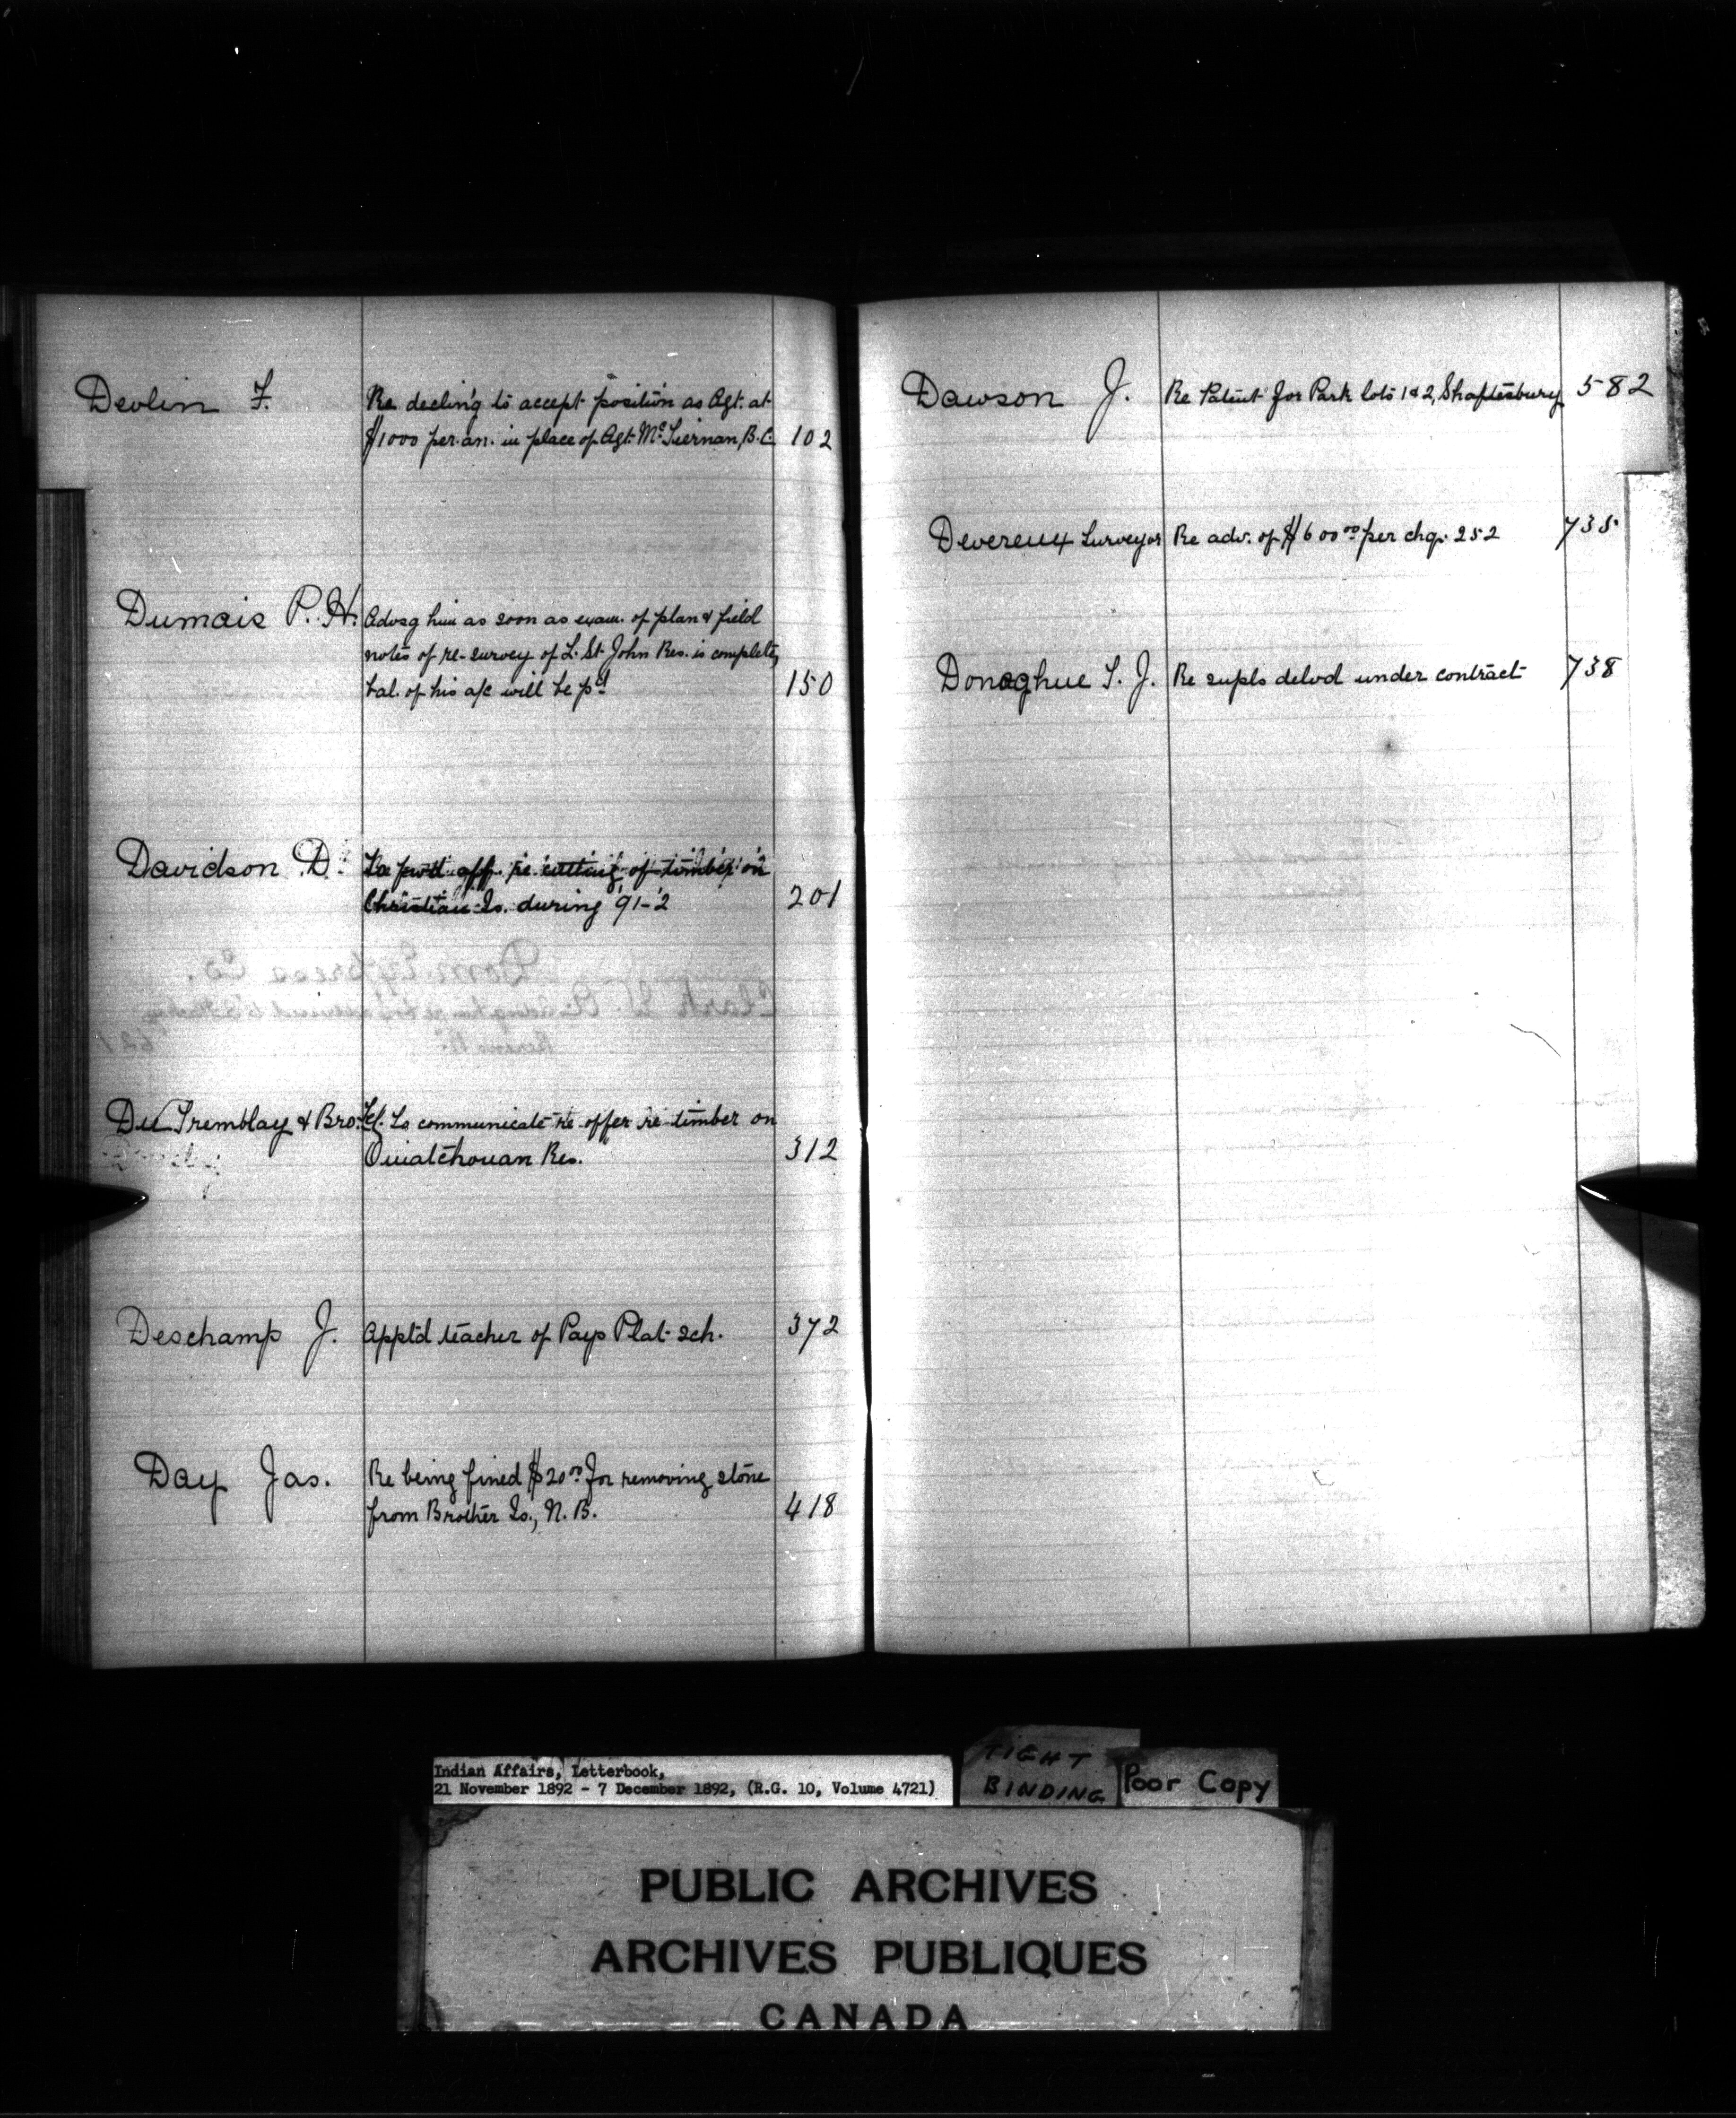 Devlin F. Re decling to accept position as Agt. at
$1000 per. an. in place of Agt. McTiernan, B.C. 102
Dumais P. H. Advsg him as soon as exam. of plan & field
notes of re-survey of L. St. John Res. is complete,
bal. of his a/c will be pd 150
Davidson D. re cutting of timber on
Christian Is. during '91-'2 201
Dom. Express Co.
Clark
621
Du Tremblay & Bro. Tel. To communicate re offer re timber on
Ouiatchouan Res. 312
Deschamp J. Apptd teacher of Pays Plat sch. 372
Day Jas. Re being fined $20.00 for removing stone
from Brother Is., N.B. 418
Dawson J. Re Patent for Park lots 1 & 2, Shaftesbury 582
Devereux Surveyor Re adv. of $600.00 per chq. 252 735
Donaghue T. J. Re supls delvd under contract 738
Indian Affairs, Letterbook,
21 November 1892 - 7 December 1892, (R.G. 10, Volume 4721)
TIGHT
BINDING
Poor Copy
PUBLIC ARCHIVES
ARCHIVES PUBLIQUES
CANADA